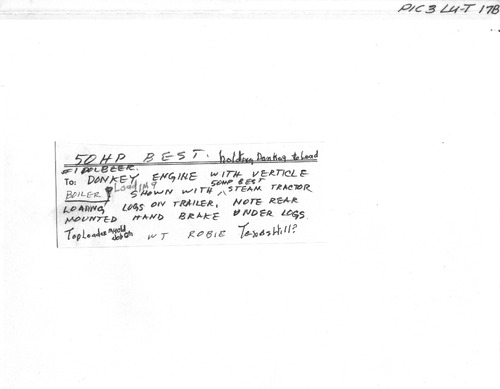 PIC 3 LU-T 178
50 HP BEST. holding Donkey to Load
#1 DOLBEER.
To: DONKEY ENGINE WITH VERTICLE
50HP BEST
BOILER Loading SHOWN WITH STEAM TRACTOR
LOADING LOGS ON TRAILER, NOTE REAR
MOUNTED HAND BRAKE UNDER LOGS
Top Loader WT ROBIE Texas Hill?